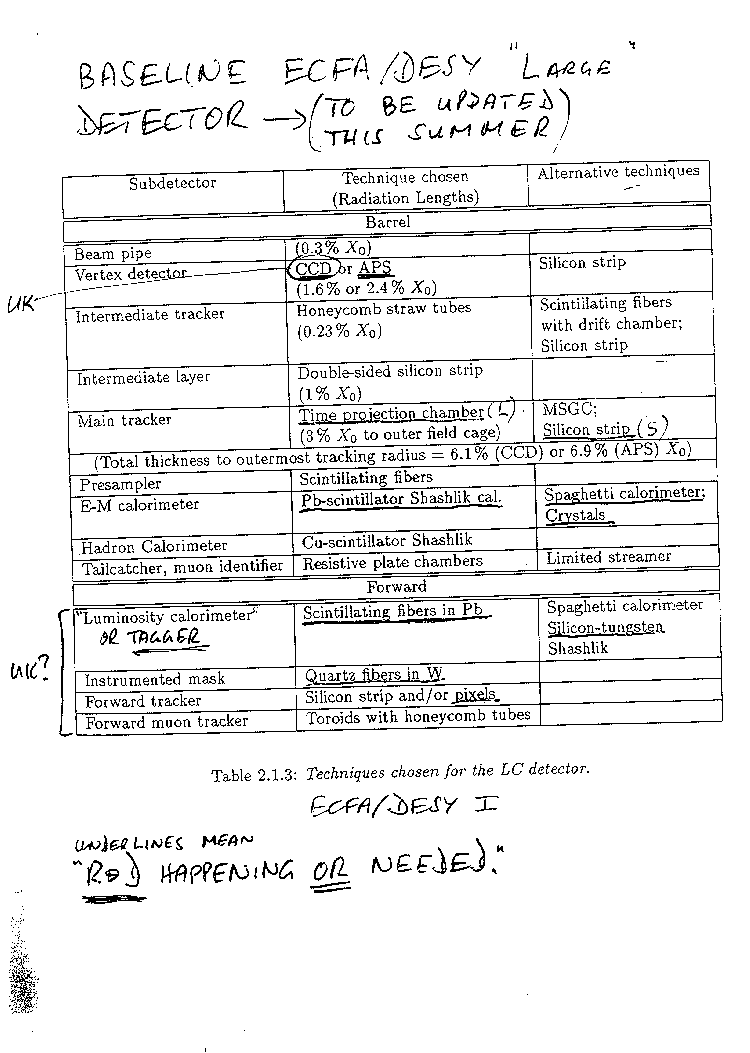 BASELINE ECFA/DESY "LARGE"
DETECTOR → (TO BE UPDATED)
(THIS SUMMER)
Subdetector Technique chosen Alternative techniques
(Radiation Lengths)
Barrel
Beam pipe (0.3% X₀)
Vertex detector CCD or APS Silicon strip
(1.6% or 2.4% X₀)
UK
Intermediate tracker Honeycomb straw tubes Scintillating fibers
(0.23% X₀) with drift chamber;
Silicon strip
Intermediate layer Double-sided silicon strip
(1% X₀)
Main tracker Time projection chamber (L) MSGC;
(3% X₀ to outer field cage) Silicon strip (S)
(Total thickness to outermost tracking radius = 6.1% (CCD) or 6.9% (APS) X₀)
Presampler Scintillating fibers
E-M calorimeter Pb-scintillator Shashlik cal. Spaghetti calorimeter;
Crystals
Hadron Calorimeter Cu-scintillator Shashlik
Tailcatcher, muon identifier Resistive plate chambers Limited streamer
Forward
"Luminosity calorimeter" Scintillating fibers in Pb Spaghetti calorimeter
OR TAGGER Silicon-tungsten
Shashlik
UK?
Instrumented mask Quartz fibers in W
Forward tracker Silicon strip and/or pixels
Forward muon tracker Toroids with honeycomb tubes
Table 2.1.3: Techniques chosen for the LC detector.
ECFA/DESY I
UNDERLINES MEAN
"R&D HAPPENING OR NEEDED."